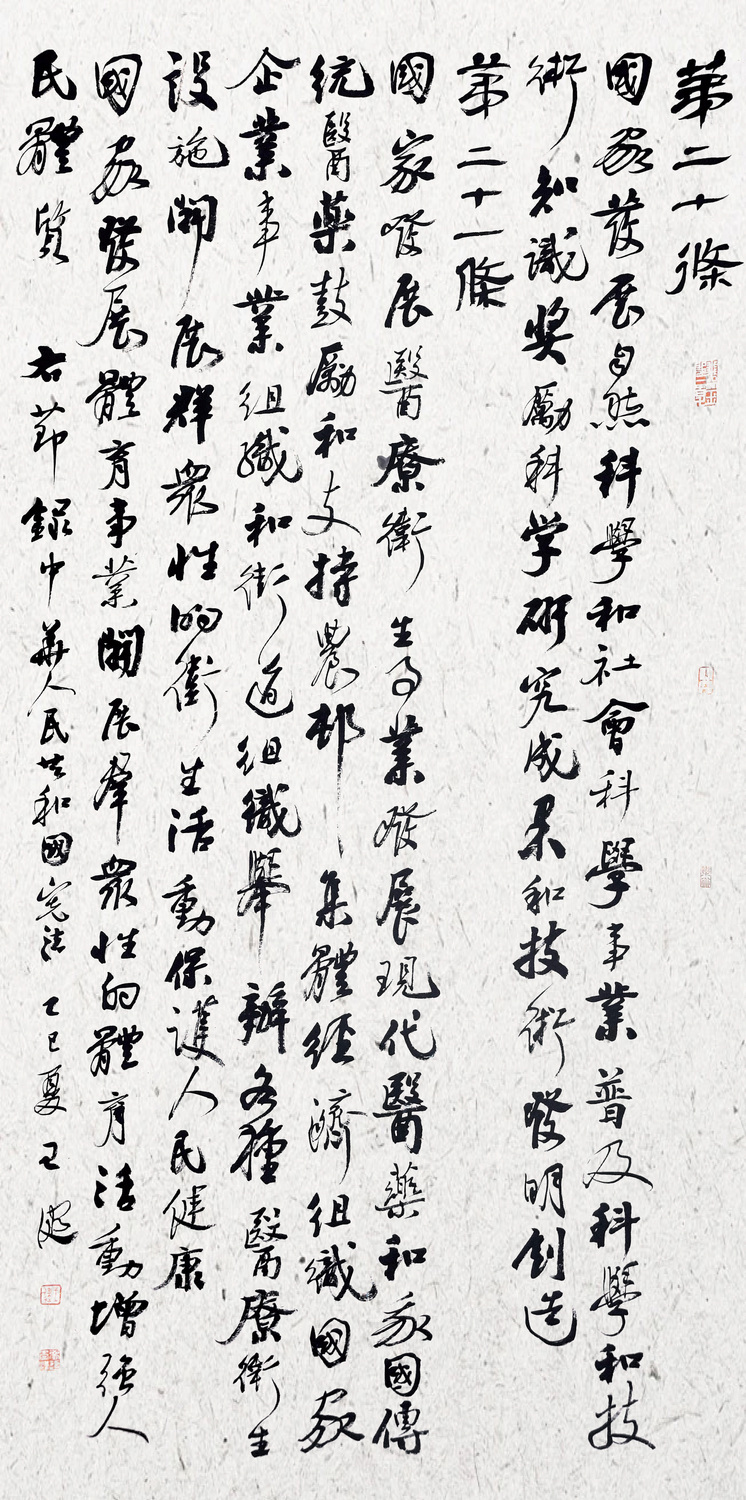 第二十條
國家發展自然科學和社會科學事業普及科學和技
術知識奬勵科学研究成果和技術發明創造
第二十一條
國家發展醫療衛生事業發展現代醫藥和我國傳
統醫藥鼓勵和支持農邨集體經濟組織國家
企業事業組織和街道組織舉辦各種醫療衛生
設施開展群衆性的衛生活動保護人民健康
國家發展體育事業開展羣衆性的體育活動增强人
民體質 右節録中華人民共和國憲法 乙巳夏